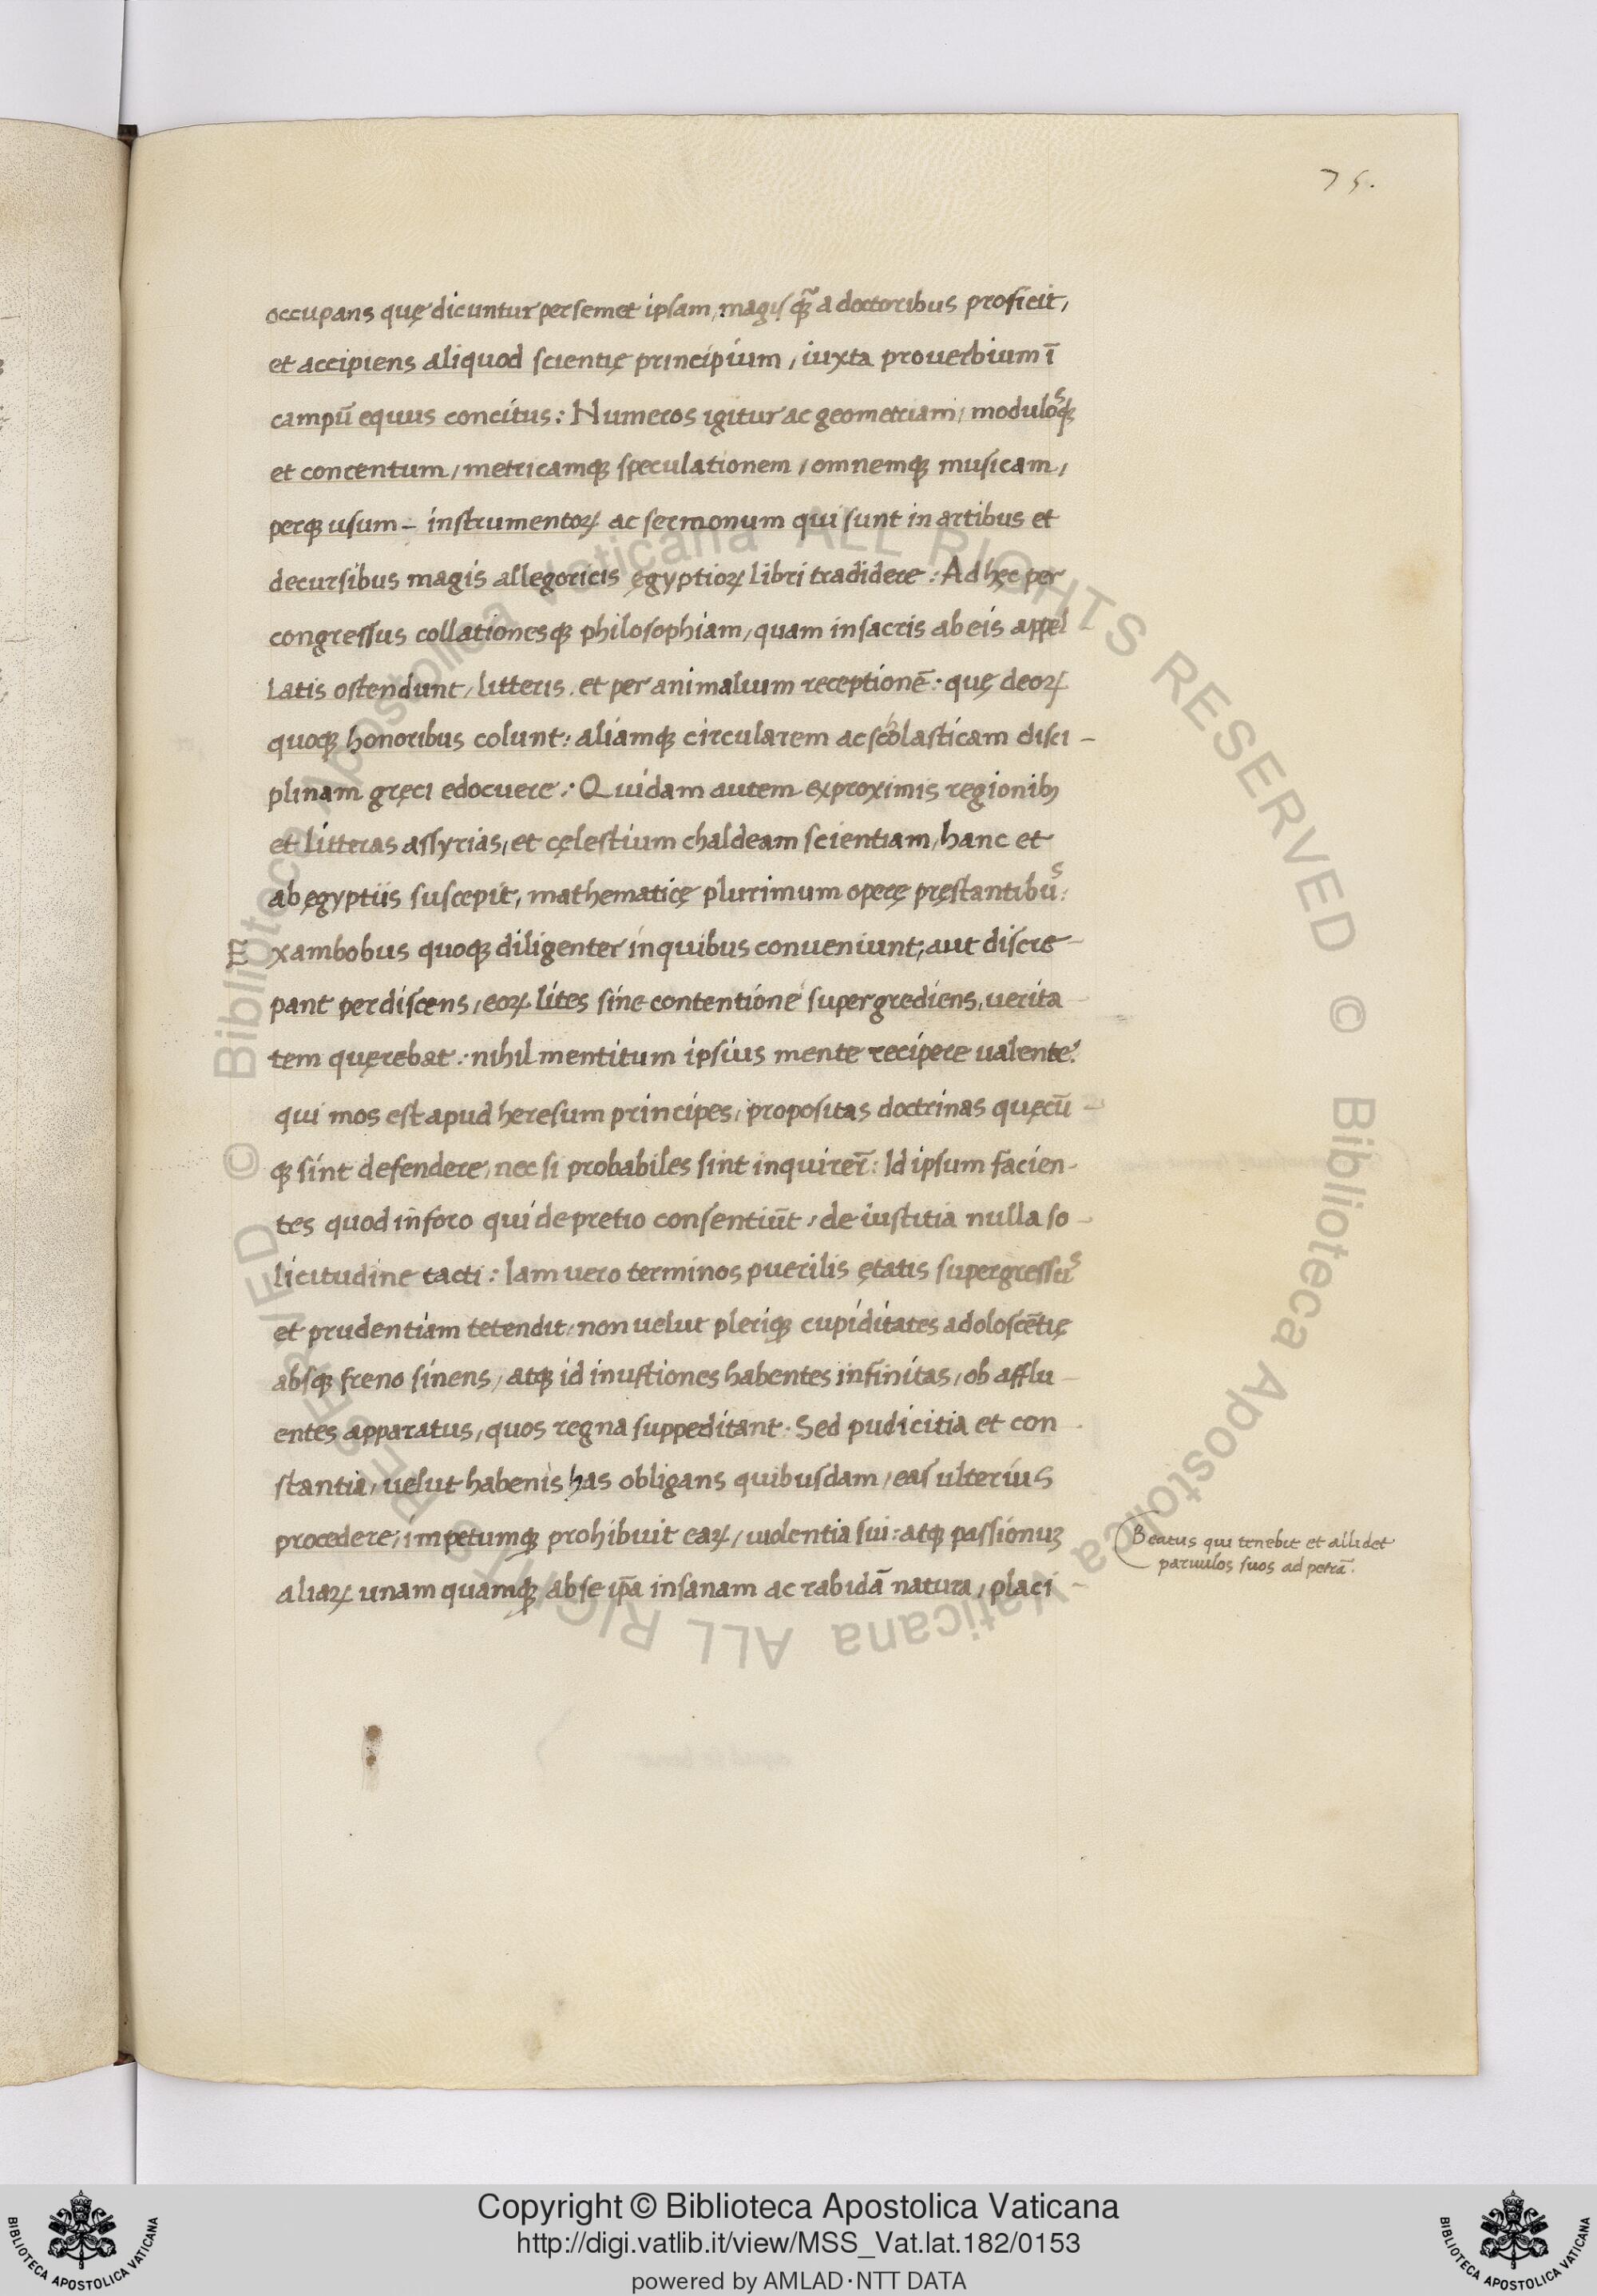 75.
occupans quę dicuntur per semet ipsam, magis q̃ a doctoribus proficit,
et accipiens aliquod scientię principium, iuxta prouerbium ĩ
campũ equus concitus: Numeros igitur ac geometriam, modulosqꝫ
et concentum, metricamqꝫ speculationem, omnemqꝫ musicam,
perqꝫ usum – instrumentoꝝ ac sermonum qui sunt in artibus et
decursibus magis allegoricis ęgyptioꝝ libri tradidere: Ad hęc per
congressus collationesqꝫ philosophiam, quam in sacris ab eis appel
latis ostendunt, litteris. et per animalium receptionẽ: quę deoꝝ
quoqꝫ honoribus colunt: aliamqꝫ circularem ac scholasticam disci –
plinam gręci edocuere: Quidam autem ex proximis regionibꝫ
et litteras assyrias, et cęlestium chaldeam scientiam, hanc et
ab ęgyptiis suscepit, mathematicę plurimum operę pręstantibus:
Ex ambobus quoqꝫ diligenter in quibus conueniunt, aut discre –
pant perdiscens, eoꝝ lites sine contentione supergrediens, uerita –
tem quęrebat: nihil mentitum ipsius mente recipere ualente:
qui mos est apud heresum principes, propositas doctrinas quęcũ –
qꝫ sint defendere, nec si probabiles sint inquirer̃: Id ipsum facien –
tes quod in foro qui de pretio consentiũt, de iustitia nulla so –
licitudine tacti: Iam uero terminos puerilis ętatis supergressus
et prudentiam tetendit, non uelut pleriqꝫ cupiditates adoloscẽtię
absqꝫ freno sinens, atqꝫ id inustiones habentes infinitas, ob afflu –
entes apparatus, quos regna suppeditant. Sed pudicitia et con –
stantia, uelut habenis has obligans quibusdam, eas ulterius
procedere, impetumqꝫ prohibuit eaꝝ, uiolentia sui: atqꝫ passionuꝫ
aliaꝝ unam quamqꝫ ab se ip̃a insanam ac rabidã natura, placi –
Beatus qui tenebit et allidet
paruulos suos ad petrã.
© Biblioteca Apostolica Vaticana ALL RIGHTS RESERVED © Biblioteca Apostolica Vaticana ALL RIGHTS RESERVED
Copyright © Biblioteca Apostolica Vaticana
http://digi.vatlib.it/view/MSS_Vat.lat.182/0153
powered by AMLAD·NTT DATA
BIBLIOTECA APOSTOLICA VATICANA
BIBLIOTECA APOSTOLICA VATICANA